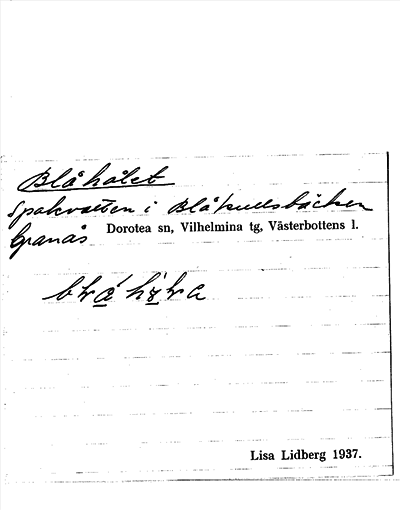 Blåhålet
Spakvatten i Blåkullsbäcken
Granås Dorotea sn, Vilhelmina tg, Västerbottens l.
Lisa Lidberg 1937.